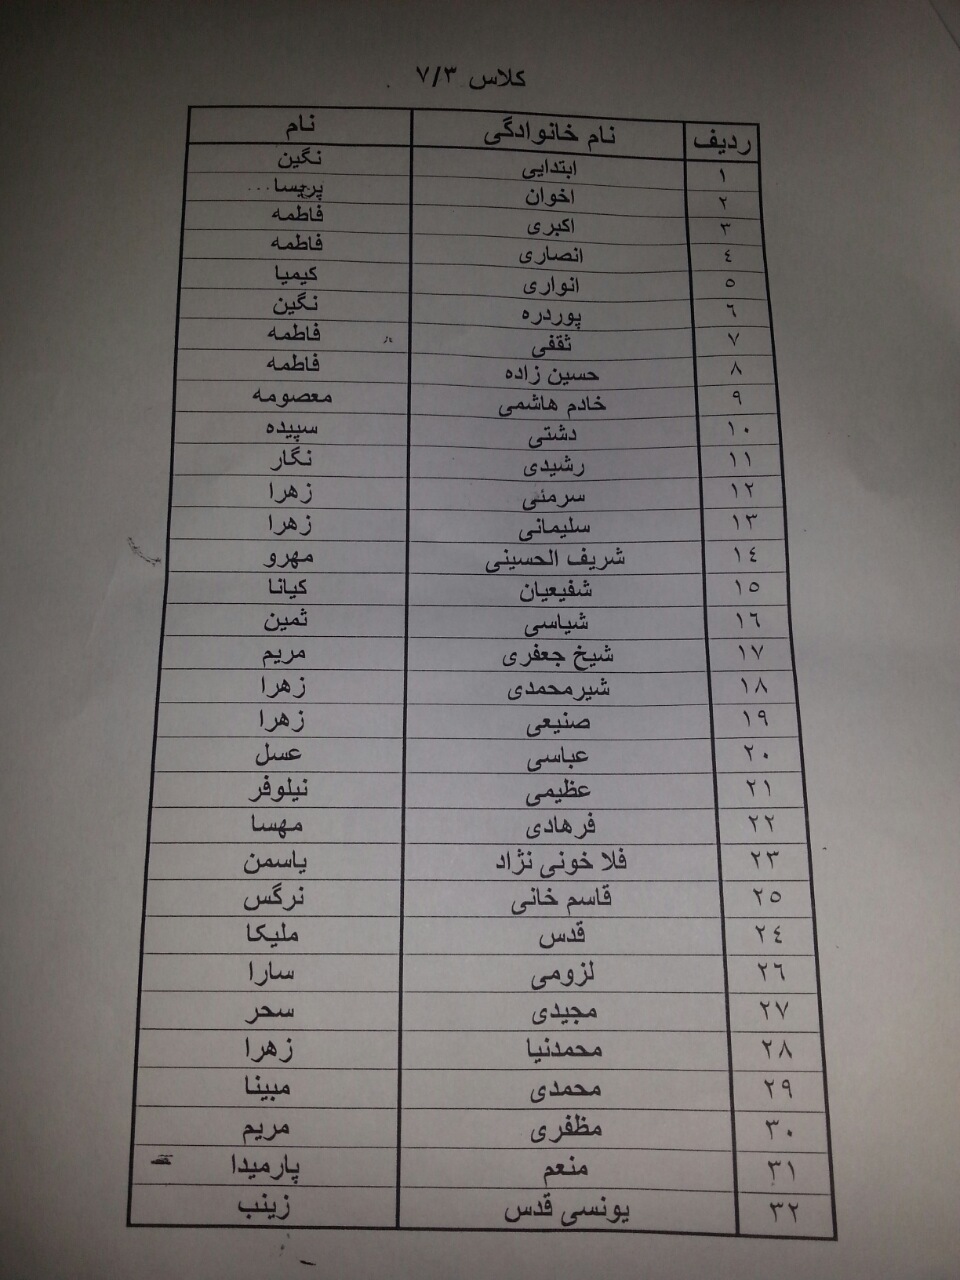 کلاس ۷/۳
ردیف نام خانوادگی نام
١ ابتدایی نگین
٢ اخوان پریسا
٣ اکبری فاطمه
٤ انصاری فاطمه
٥ انواری کیمیا
٦ پوردره نگین
٧ ثقفی فاطمه
٨ حسین زاده فاطمه
٩ خادم هاشمی معصومه
١٠ دشتی سپیده
١١ رشیدی نگار
١٢ سرمئی زهرا
١٣ سلیمانی زهرا
١٤ شریف الحسینی مهرو
١٥ شفیعیان کیانا
١٦ شیاسی ثمین
١٧ شیخ جعفری مریم
١٨ شیرمحمدی زهرا
١٩ صنیعی زهرا
٢٠ عباسی عسل
٢١ عظیمی نیلوفر
٢٢ فرهادی مهسا
٢٣ فلا خونی نژاد یاسمن
٢٥ قاسم خانی نرگس
٢٤ قدس ملیکا
٢٦ لزومی سارا
٢٧ مجیدی سحر
٢٨ محمدنیا زهرا
٢٩ محمدی مبینا
٣٠ مظفری مریم
٣١ منعم پارمیدا
٣٢ یونسی قدس زینب